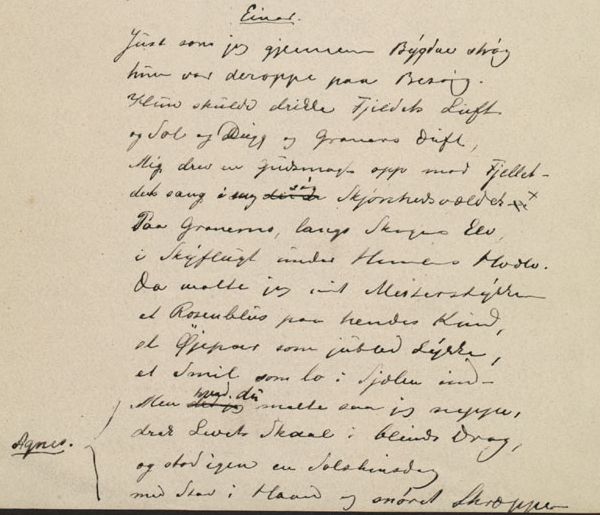 Einar.
Just som jeg gjennem Bygder strøg
hun var deroppe paa Besøg.
Hun skulde drikke Fjeldets Luft
og Sol og Dugg og Graners Duft,
Mig drev en Gudsmagt opp mod Fjellet –
det sang i mig søg Skjønhedsvældet
Paa Granerne, langs Skogens Elv,
i Skyflugt under Himlens Hvælv.
Da malte jeg mit Mesterstykke
et Rosenblus paa hendes Kind,
et Øjepar som jubled Lykke,
et Smil som lo i Sjælen ind –
Agnes.
Men hvad du malte saa jeg neppe,
drak Livets Skaal i blinde Drag,
og stod igen en Solskinsdag
med Stav i Haand og snøret Skreppe